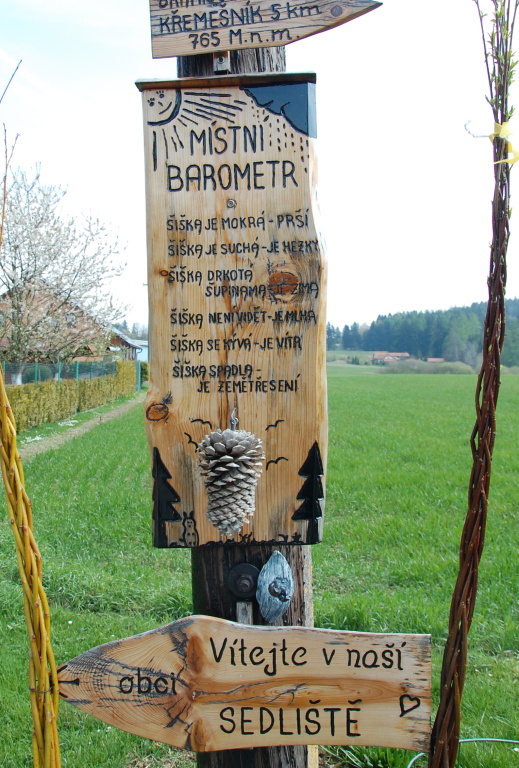 KŘEMEŠNÍK 5 km
765 M.n.m
MÍSTNI
BAROMETR
ŠIŠKA JE MOKRÁ-PRŠÍ
ŠIŠKA JE SUCHÁ-JE HEZKY
ŠIŠKA DRKOTÁ
ŠUPINAMA-JE ZIMA
ŠIŠKA NENÍ VIDĚT-JE MLHA
ŠIŠKA SE KÝVÁ-JE VÍTR
ŠIŠKA SPADLA-
JE ZEMĚTŘESENÍ
Vítejte v naší
obci
SEDLIŠTĚ